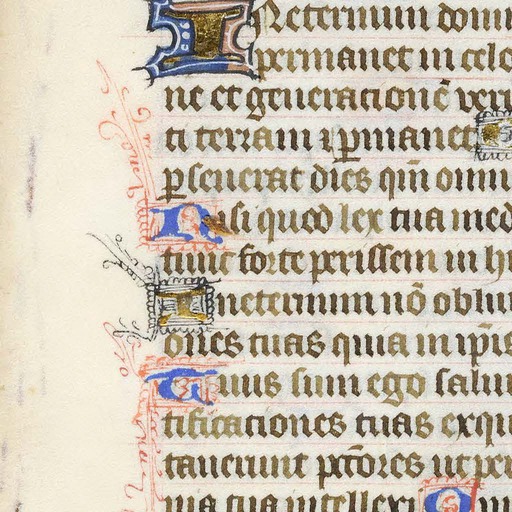 In eternum domi
permanet in cele
ne et generationē veri
ti terram ⁊ ꝑmanet
ꝑseuerat dies qm̄ omni
Nisi quod lex tua med
tunc forte perissem in hu
In eternum nō obliui
ones tuas quia in ip̄is
Tuus sum ego saluu
tificationes tuas exqui
tauerunt pctōres ut per
nia tua intellexi O